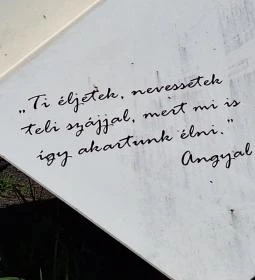 „Ti éljetek, nevessetek
teli szájjal, mert mi is
így akartunk élni."
Angyal